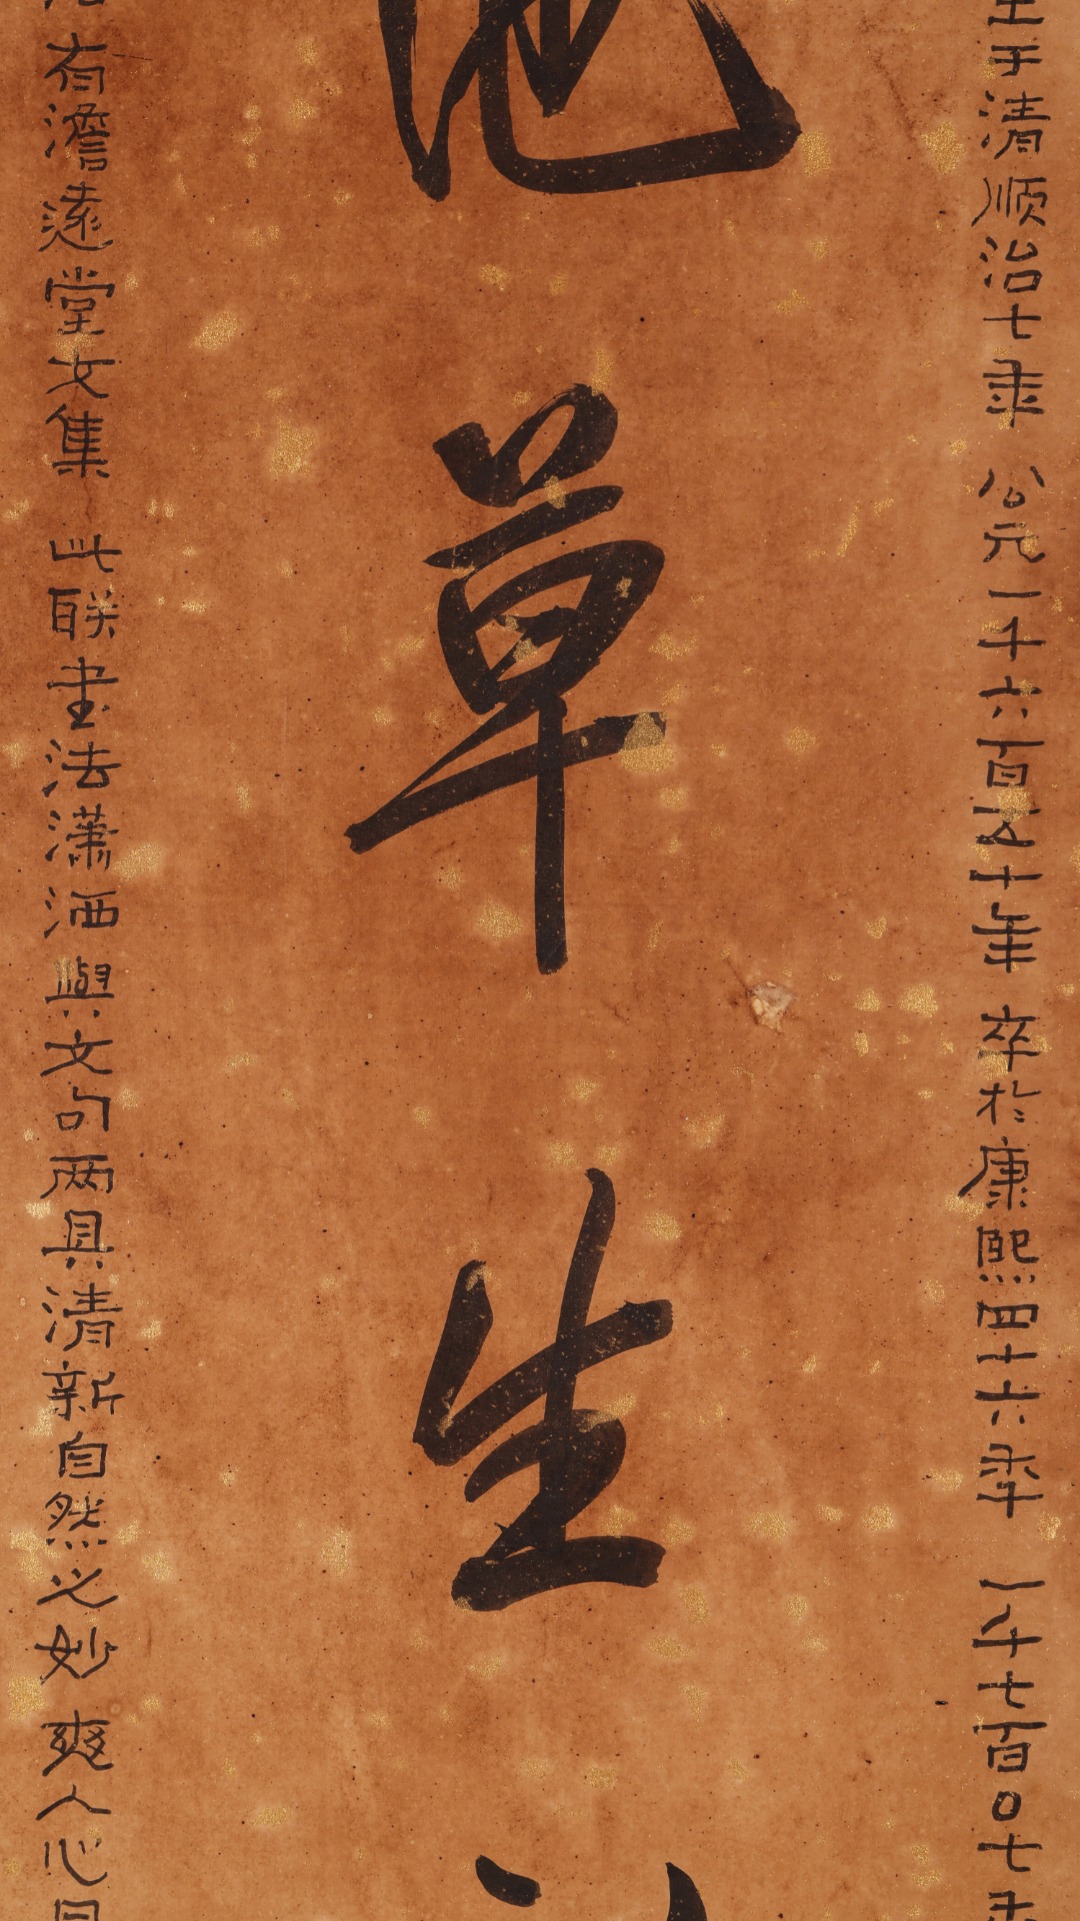 生于清顺治七年 公元一千六百五十年 卒於康熙四十六年 一千七百〇七年
池草生
有澹遠堂文集 此联书法潇洒與文句两具清新自然之妙 爽人心目